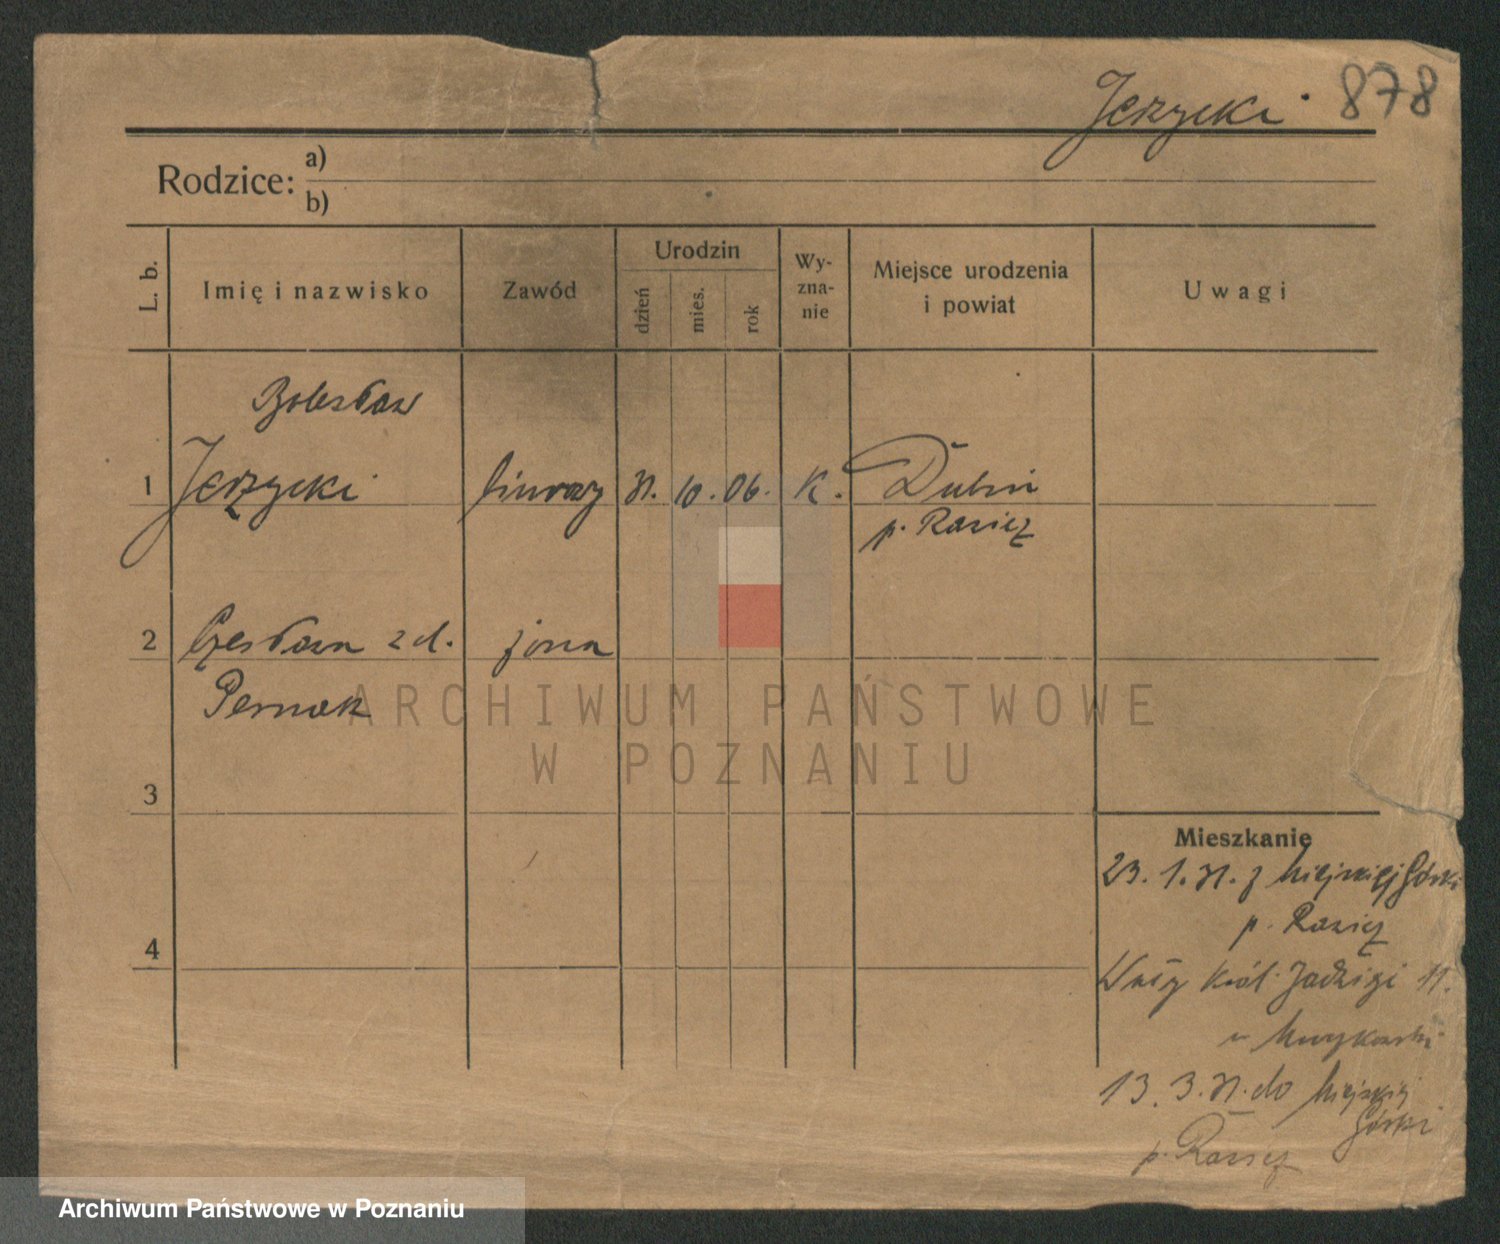 Jerzycki. 878
Rodzice: a)
b)
L. b.
Imię i nazwisko
Zawód
Urodzin
dzień
mies.
rok
Wy-
zna-
nie
Miejsce urodzenia
i powiat
Uwagi
Bolesław
1 Jerzycki 31. 10. 06. K. Dubin
p. Rawicz
2 Czesława z d. żona
Pernak
3
4
Mieszkanie
23. 1. 31. z Miejskiej Górki
p. Rawicz
Król. Jadwigi 11.
13. 3. 31. do Miejskiej
Górki
p. Rawicz
ARCHIWUM PAŃSTWOWE
W POZNANIU
Archiwum Państwowe w Poznaniu